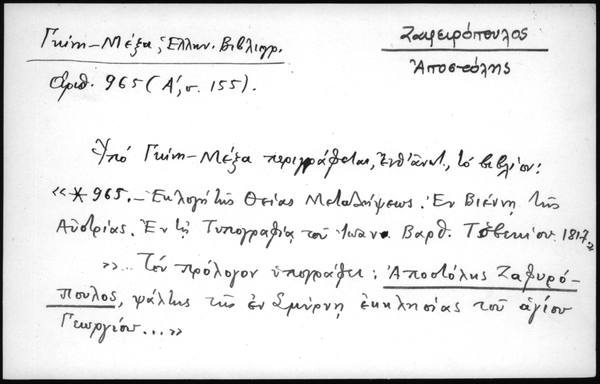 Γκίνη–Μέξα, Ἑλλην. Βιβλιογρ.
Ζαφειρόπουλος
Ἀποστόλης
ἀριθ. 965 (Α΄, σ. 155).
Ὑπό Γκίνη–Μέξα περιγράφεται, τό βιβλίον:
«*965.– Ἐκλογή τῆς Θείας Μεταλήψεως. Ἐν Βιέννῃ τῆς
Αὐστρίας. Ἐν τῇ Τυπογραφίᾳ τοῦ Ἰωάν. Βαρθ. Τσβεκίου 1817»
»... Τόν πρόλογον ὑπογράφει: Ἀποστόλης Ζαφυρό-
πουλος, ψάλτης τῆς ἐν Σμύρνῃ ἐκκλησίας τοῦ ἁγίου
Γεωργίου...»